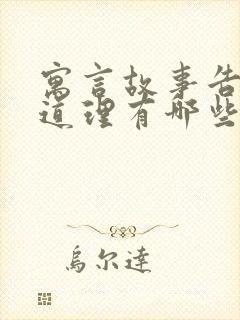 寓言故事告
道理有哪些
烏尔達